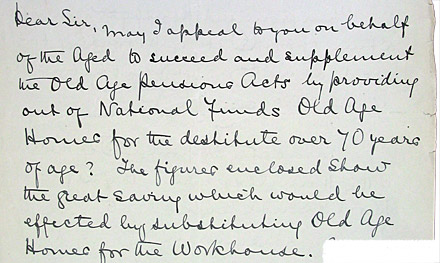 Dear Sir, may I appeal to you on behalf
of the Aged to succeed and supplement
the Old Age Pensions Acts by providing
out of National Funds Old Age
Homes for the destitute over 70 years
of age? The figures enclosed show
the great saving which would be
effected by substituting Old Age
Homes for the Workhouse.